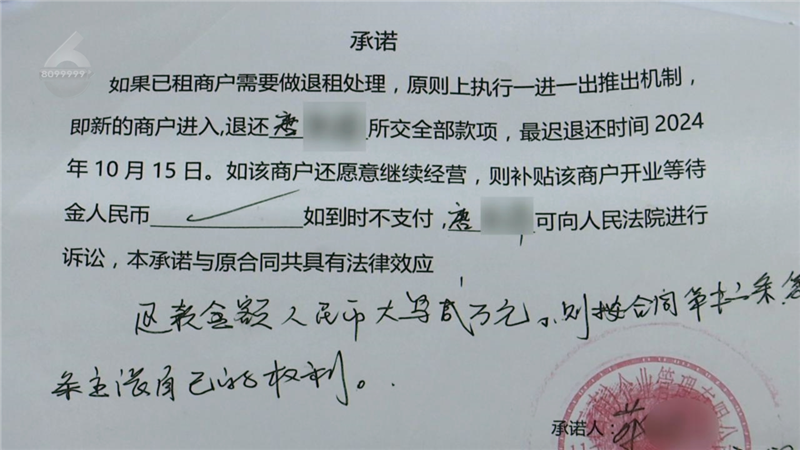 8099999
承诺
如果已租商户需要做退租处理，原则上执行一进一出推出机制，
即新的商户进入,退还 唐 所交全部款项，最迟退还时间 2024
年 10 月 15 日。如该商户还愿意继续经营，则补贴该商户开业等待
金人民币 如到时不支付,唐 可向人民法院进行
诉讼，本承诺与原合同共具有法律效应
退款金额人民币大写贰万元 则按合同第 条
条主张自己的权利。
企业管理有限公
承诺人：